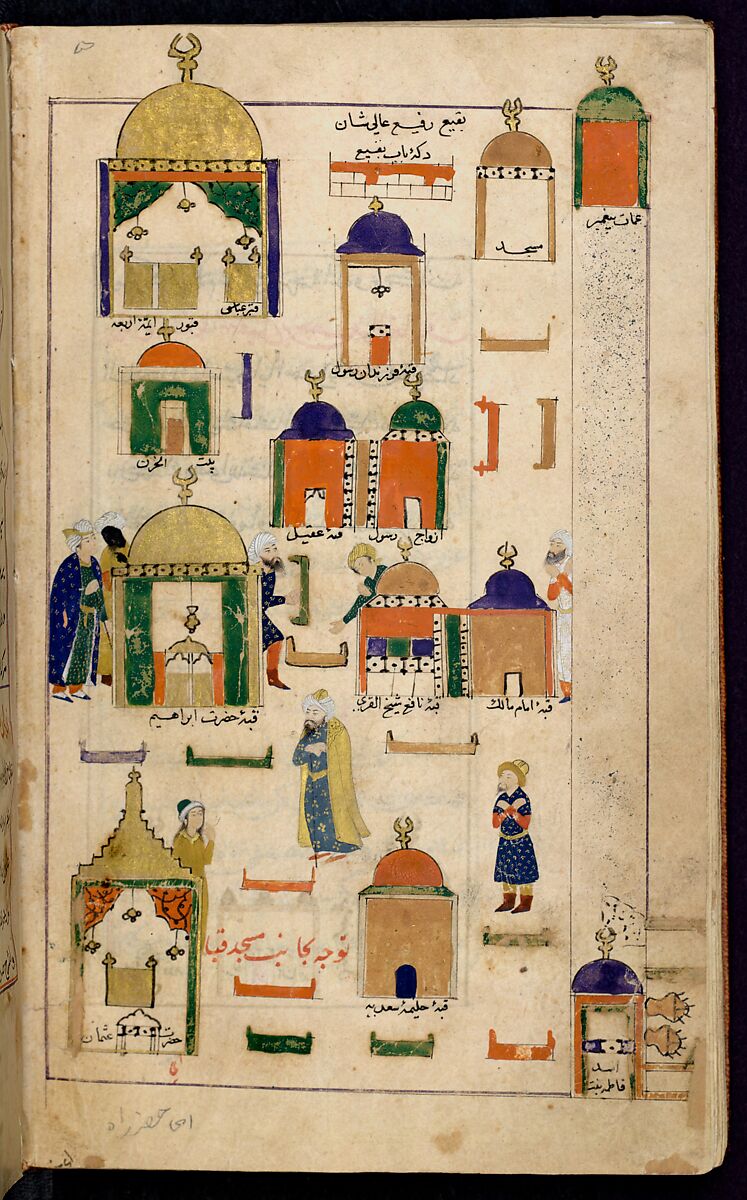 بقیع رفیع عالی شان
دکهٔ باب بقیع
عمات پیغمبر
مسجد
قبر عباس
قبور ائمهٔ اربعه
قبهٔ فرزندان رسول
بیت الحزن
قبهٔ عقیل
ازواج رسول
قبهٔ حضرت ابراهیم
قبهٔ نافع شیخ القری
قبهٔ امام مالک
توجه بجانب مسجد قبا
قبهٔ حلیمهٔ سعدیه
حضرت عثمان
اسد
فاطمه بنت